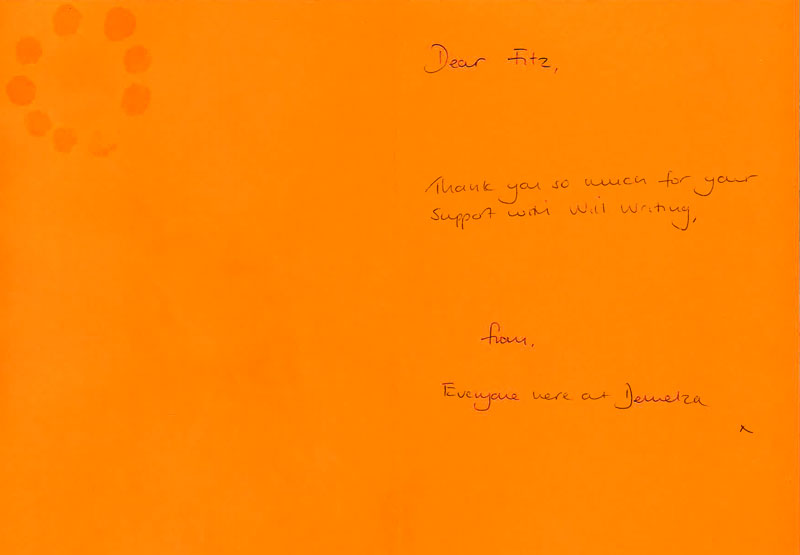 Dear Fitz,
Thank you so much for your
Support with Will Writing,
from,
Everyone here at Demelza
x